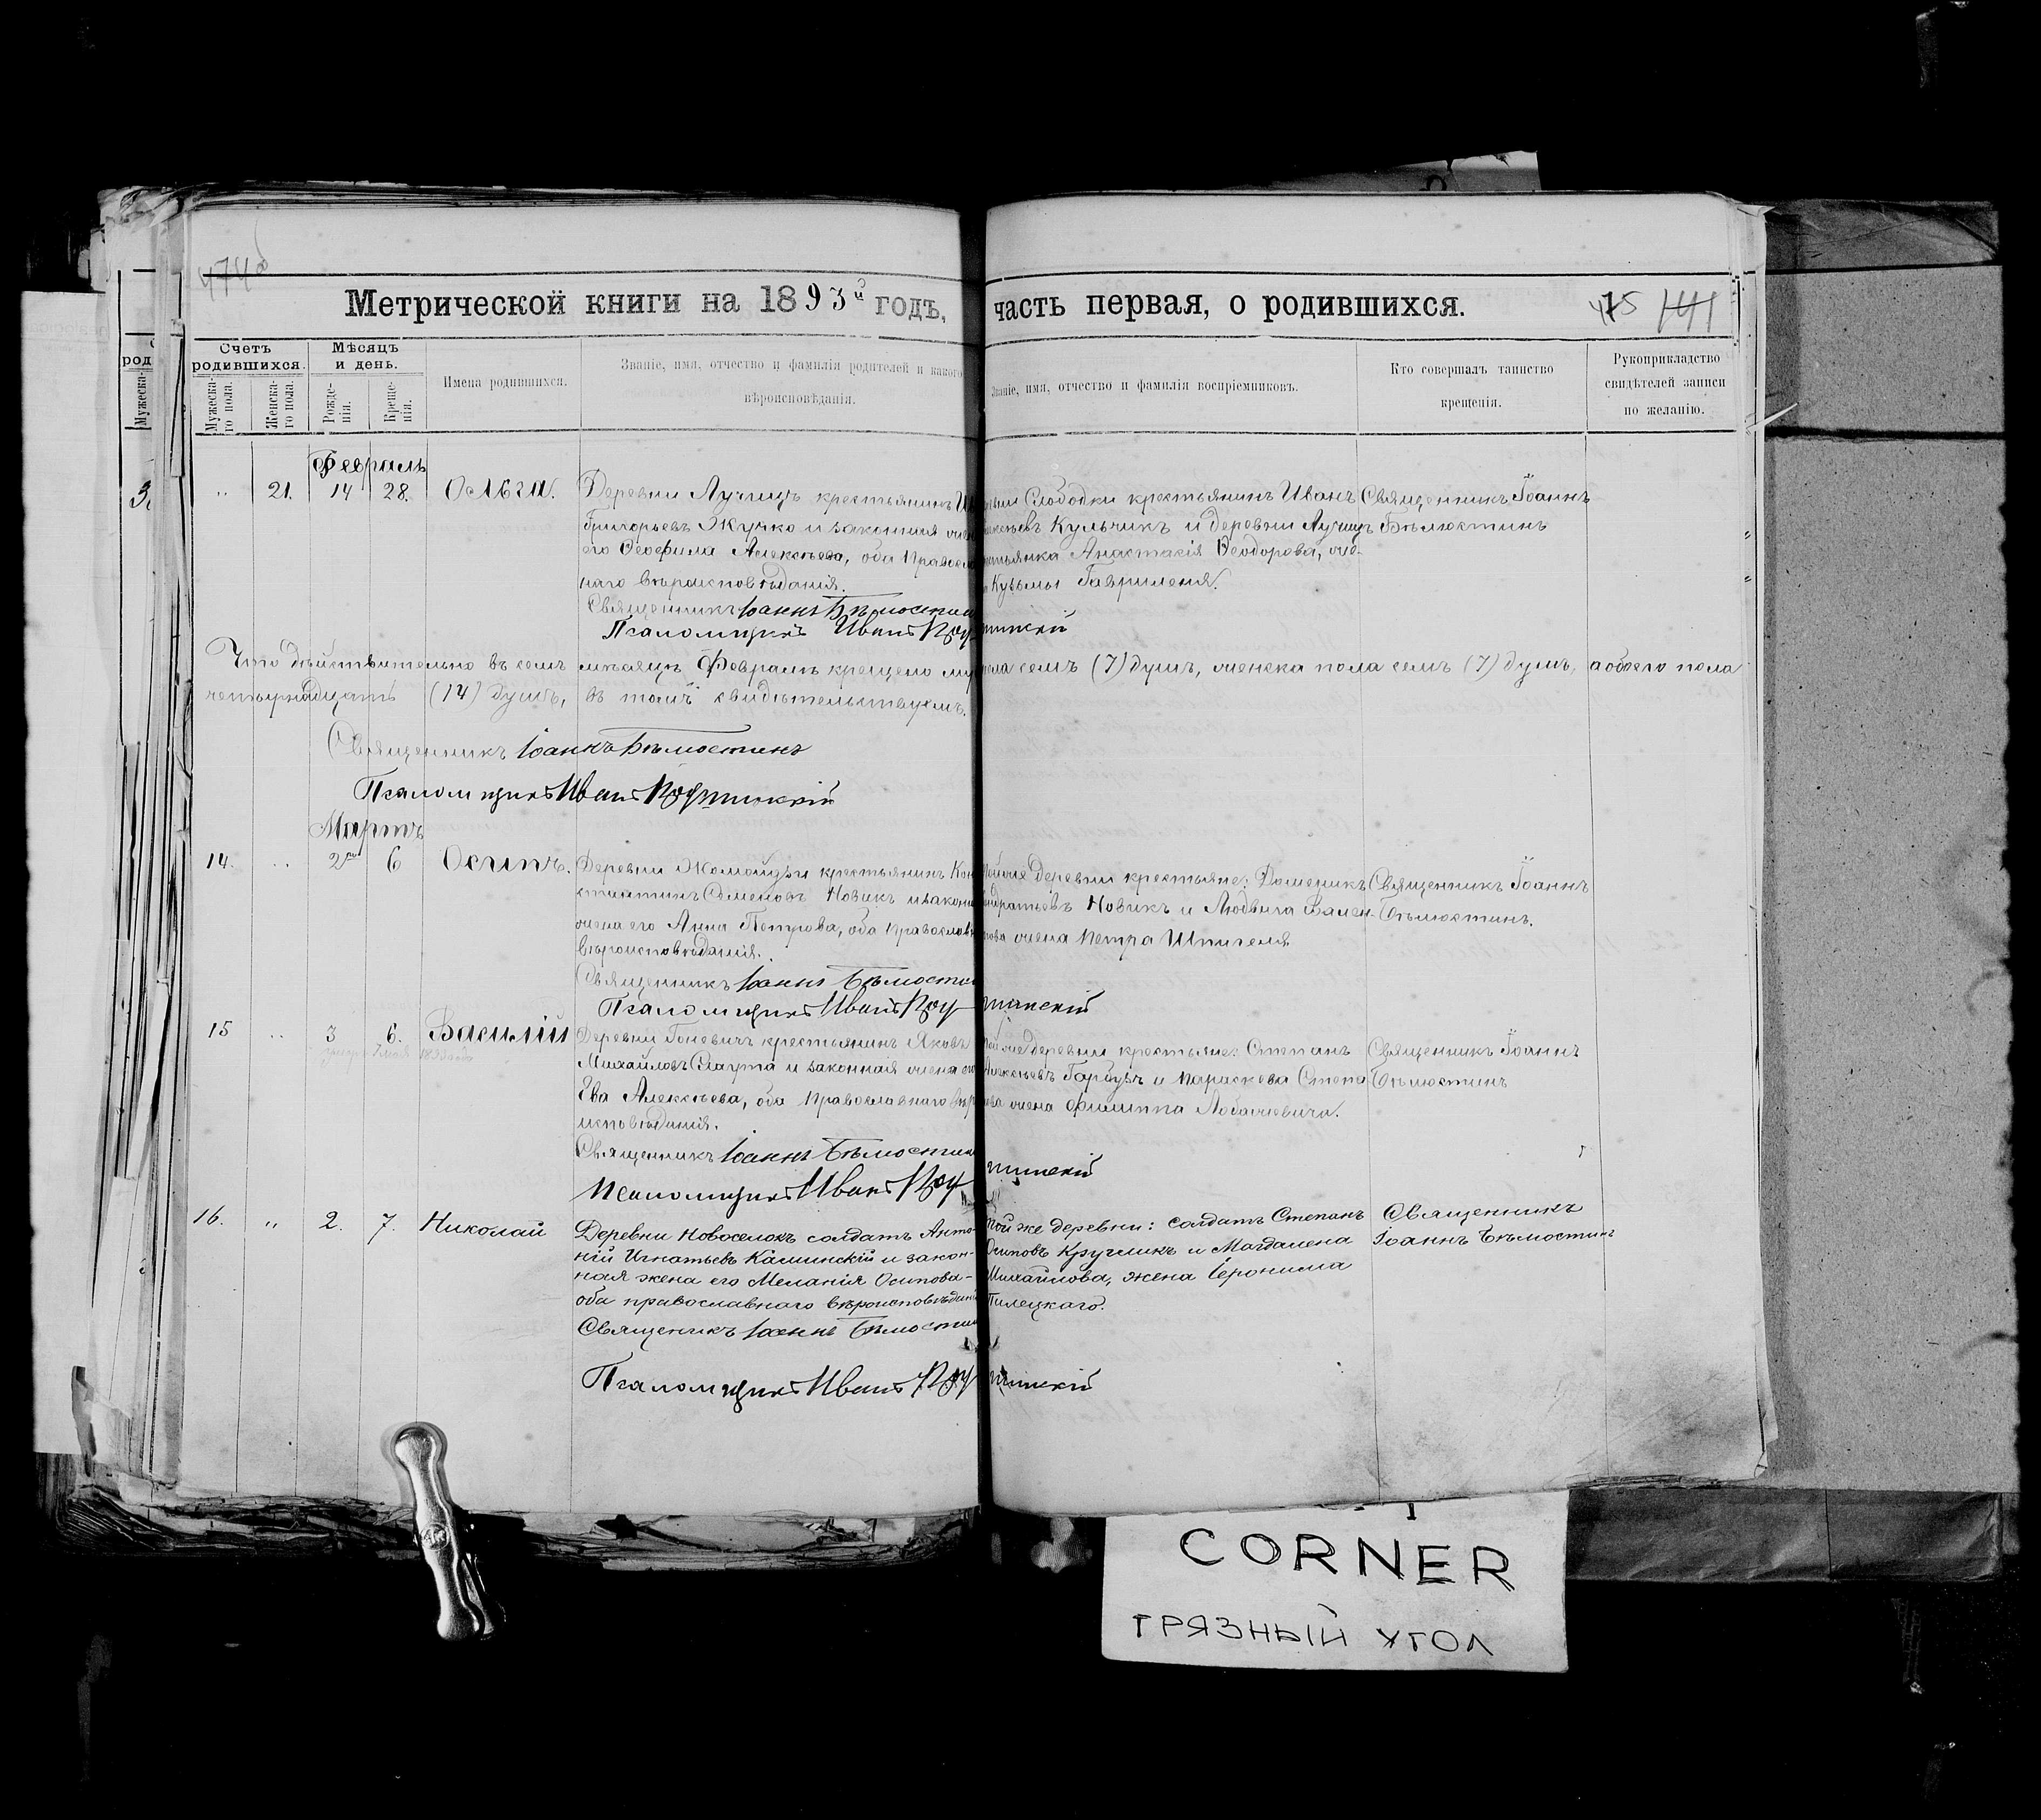 474 об
Метрической книги на 1893й годъ, часть первая, о родившихся.
475
141
Счетъ родившихся.
Мѣсяцъ и день.
Мужеска-го пола.
Женска-го пола.
Рожде-нія.
Креще-нія.
Имена родившихся.
Званіе, имя, отчество и фамилія родителей и какого
вѣроисповѣданія.
Званіе, имя, отчество и фамилія воспріемниковъ.
Кто совершалъ таинство
крещенія.
Рукоприкладство
свидѣтелей записи
по желанію.
род
Мужеска-
Февраль
" 21. 14 28. Ольга.
Деревни Лучицъ крестьянинъ Ив
Григорьевъ Жучко и законная жен
его Ѳеофила Алексѣева, оба Правосла
наго вѣроисповѣданія.
Священникъ Іоаннъ Бѣлюстин
Псаломщикъ Иванъ
евни Слободки крестьянинъ Иванъ
лексѣевъ Кульчикъ и деревни Лучицъ
стьянка Анастасія Ѳеодорова, же-
Кузьмы Гавриленя.
Священникъ Іоаннъ
Бѣлюстинъ
Что дѣйствительно въ семъ мѣсяцѣ Февралѣ крещено му пола семъ (7) душъ, женска пола семъ (7) душъ, а обоего пола
четырнадцать (14) душъ, въ томъ свидѣтельствуемъ.
Священникъ Іоаннъ Бѣлюстинъ
Псаломщикъ Иванъ
Мартъ
14. " 2го 6 Осипъ.
Деревни Жомойдзи крестьянинъ Кон
стантинъ Семеновъ Новикъ и закон
жена его Анна Петрова, оба Православн
вѣроисповѣданія.
Священникъ Іоаннъ Бѣлюстин
Псаломщикъ Иванъ
той же деревни крестьяне: Доменикъ
Новикъ и Людвига Вален-
нова жена Петра Шпигеля
Священникъ Іоаннъ
Бѣлюстинъ.
15 " 3 6. Василій
Деревни крестьянинъ Яковъ
Михайловъ Слаута и законная жена его
Ева Алексѣева, оба Православнаго вѣр
исповѣданія.
Священникъ Іоаннъ Бѣлюстин
Псаломщикъ Иванъ
той же деревни крестьяне: Степанъ
Алексѣевъ и Параскева Степа
нова жена Филиппа Лобачевича.
Священникъ Іоаннъ
Бѣлюстинъ
16. " 2. 7. Николай
Деревни Новоселокъ солдатъ Анто-
ній Игнатьевъ Каминскій и закон-
ная жена его Меланія Осипова-
оба православнаго вѣроисповѣдані
Священникъ Іоаннъ Бѣлюстин
Псаломщикъ Иванъ
той же деревни: солдатъ Степанъ
Осиповъ Кругликъ и Магдалена
Михайлова, жена Іеронима
Пилецкаго.
Священникъ
Іоаннъ Бѣлюстинъ
CORNER
ГРЯЗНЫЙ УГОЛ